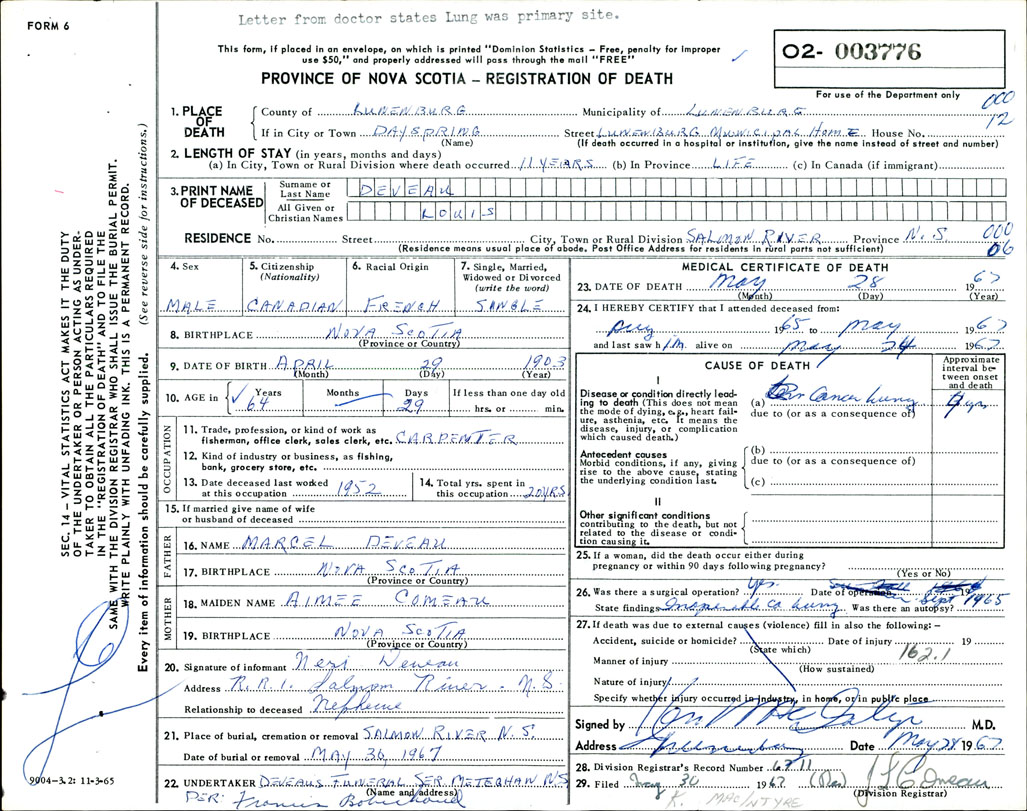 Letter from doctor states Lung was primary site.
FORM 6
This form, if placed in an envelope, on which is printed "Dominion Statistics – Free, penalty for improper
use $50," and properly addressed will pass through the mail "FREE"
PROVINCE OF NOVA SCOTIA – REGISTRATION OF DEATH
02- 003776
For use of the Department only
000
12
1. PLACE OF DEATH County of LUNENBURG Municipality of LUNENBURG
If in City or Town DAYSPRING (Name) Street LUNENBURG MUNICIPAL HOME House No.
(If death occurred in a hospital or institution, give the name instead of street and number)
2. LENGTH OF STAY (in years, months and days)
(a) In City, Town or Rural Division where death occurred 11 YEARS (b) In Province LIFE (c) In Canada (if immigrant)
3. PRINT NAME OF DECEASED
Surname or Last Name DEVEAU
All Given or Christian Names LOUIS
RESIDENCE No. Street City, Town or Rural Division SALMON RIVER Province N.S. 000
06
(Residence means usual place of abode. Post Office Address for residents in rural parts not sufficient)
4. Sex MALE
5. Citizenship (Nationality) CANADIAN
6. Racial Origin FRENCH
7. Single, Married, Widowed or Divorced (write the word) SINGLE
8. BIRTHPLACE NOVA SCOTIA
(Province or Country)
9. DATE OF BIRTH APRIL 29 1903
(Month) (Day) (Year)
10. AGE in Years 64 Months Days 29 If less than one day old hrs. or min.
OCCUPATION
11. Trade, profession, or kind of work as
fisherman, office clerk, sales clerk, etc. CARPENTER
12. Kind of industry or business, as fishing,
bank, grocery store, etc.
13. Date deceased last worked at this occupation 1952
14. Total yrs. spent in this occupation 20 YRS
15. If married give name of wife
or husband of deceased
FATHER
16. NAME MARCEL DEVEAU
17. BIRTHPLACE NOVA SCOTIA
(Province or Country)
MOTHER
18. MAIDEN NAME AIMEE COMEAU
19. BIRTHPLACE NOVA SCOTIA
(Province or Country)
20. Signature of informant Deveau
Address R.R.1. Salmon River. N.S.
Relationship to deceased
21. Place of burial, cremation or removal SALMON RIVER N.S.
Date of burial or removal MAY 30, 1967
22. UNDERTAKER DEVEAUS FUNERAL SER. METEGHAN N.S
(Name and address)
PER: Francis
MEDICAL CERTIFICATE OF DEATH
23. DATE OF DEATH May 28 1967
(Month) (Day) (Year)
24. I HEREBY CERTIFY that I attended deceased from:
Aug 1965 to May 1967
and last saw him alive on May 24 1967
CAUSE OF DEATH
Approximate interval between onset and death
I
Disease or condition directly leading
to death (This does not mean
the mode of dying, e.g., heart failure,
asthenia, etc. It means the
disease, injury, or complication
which caused death.)
(a) Cancer lung
due to (or as a consequence of)
Antecedent causes
Morbid conditions, if any, giving
rise to the above cause, stating
the underlying condition last.
(b)
due to (or as a consequence of)
(c)
II
Other significant conditions
contributing to the death, but not
related to the disease or condition
causing it.
25. If a woman, did the death occur either during
pregnancy or within 90 days following pregnancy?
(Yes or No)
26. Was there a surgical operation? yes Date of operation 19
Sept 1965
State findings Inoperable Ca lung Was there an autopsy?
27. If death was due to external causes (violence) fill in also the following:–
Accident, suicide or homicide? Date of injury 19
(State which) 162.1
Manner of injury
(How sustained)
Nature of injury
Specify whether injury occurred in industry, in home, or in public place
Signed by M.D.
Address Date May 28 1967
28. Division Registrar's Record Number 6711
29. Filed May 30 1967
(Division Registrar)
K. MACINTYRE
SEC. 14 – VITAL STATISTICS ACT MAKES IT THE DUTY
OF THE UNDERTAKER OR PERSON ACTING AS UNDERTAKER
TO OBTAIN ALL THE PARTICULARS REQUIRED
IN THE "REGISTRATION OF DEATH" AND TO FILE THE
SAME WITH THE DIVISION REGISTRAR WHO SHALL ISSUE THE BURIAL PERMIT.
WRITE PLAINLY WITH UNFADING INK. THIS IS A PERMANENT RECORD.
Every item of information should be carefully supplied. (See reverse side for instructions.)
9004-3.2: 11-3-65